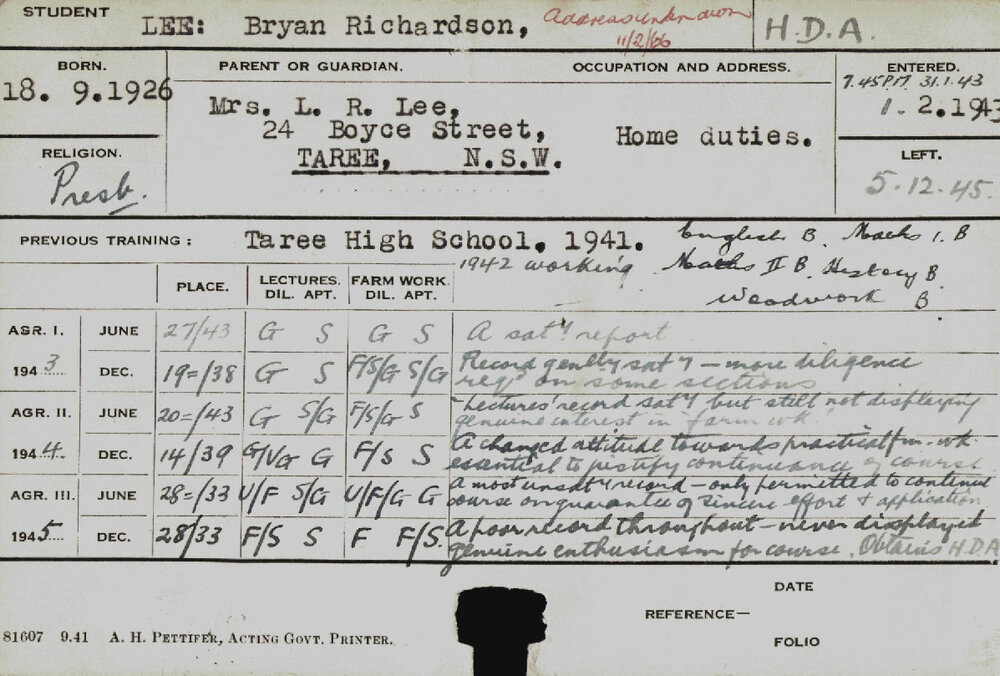 STUDENT
LEE: Bryan Richardson, Address unknown 11/2/66 H.D.A.
BORN. PARENT OR GUARDIAN. OCCUPATION AND ADDRESS. ENTERED.
18. 9.1926 Mrs. L. R. Lee, 7.45PM 31.1.43
24 Boyce Street, Home duties. 1. 2.1943
TAREE, N.S.W.
RELIGION. LEFT.
Presb. 5.12.45.
PREVIOUS TRAINING: Taree High School, 1941. English B, Maths I. B
1942 working Maths II B, History B
Woodwork B
PLACE. LECTURES. DIL. APT. FARM WORK. DIL. APT.
AGR. I. JUNE 27/43 G S G S A sat'y report
1943 DEC. 19=/38 G S F/S/G S/G Record gen'lly sat'y — more diligence
req'd on some sections
AGR. II. JUNE 20=/43 G S/G F/S/G S Lectures' record sat'y but still not displaying
genuine interest in farm wk.
1944 DEC. 14/39 G/VG G F/S S A changed attitude towards practical fm. wk
essential to justify continuance of course
AGR. III. JUNE 28=/33 U/F S/G U/F/G G A most unsat'y record — only permitted to continue
course on guarantee of sincere effort & application
1945 DEC. 28/33 F/S S F F/S. A poor record throughout — never displayed
genuine enthusiasm for course. Obtains H.D.A
DATE
REFERENCE—
FOLIO
81607 9.41 A. H. PETTIFER, ACTING GOVT. PRINTER.